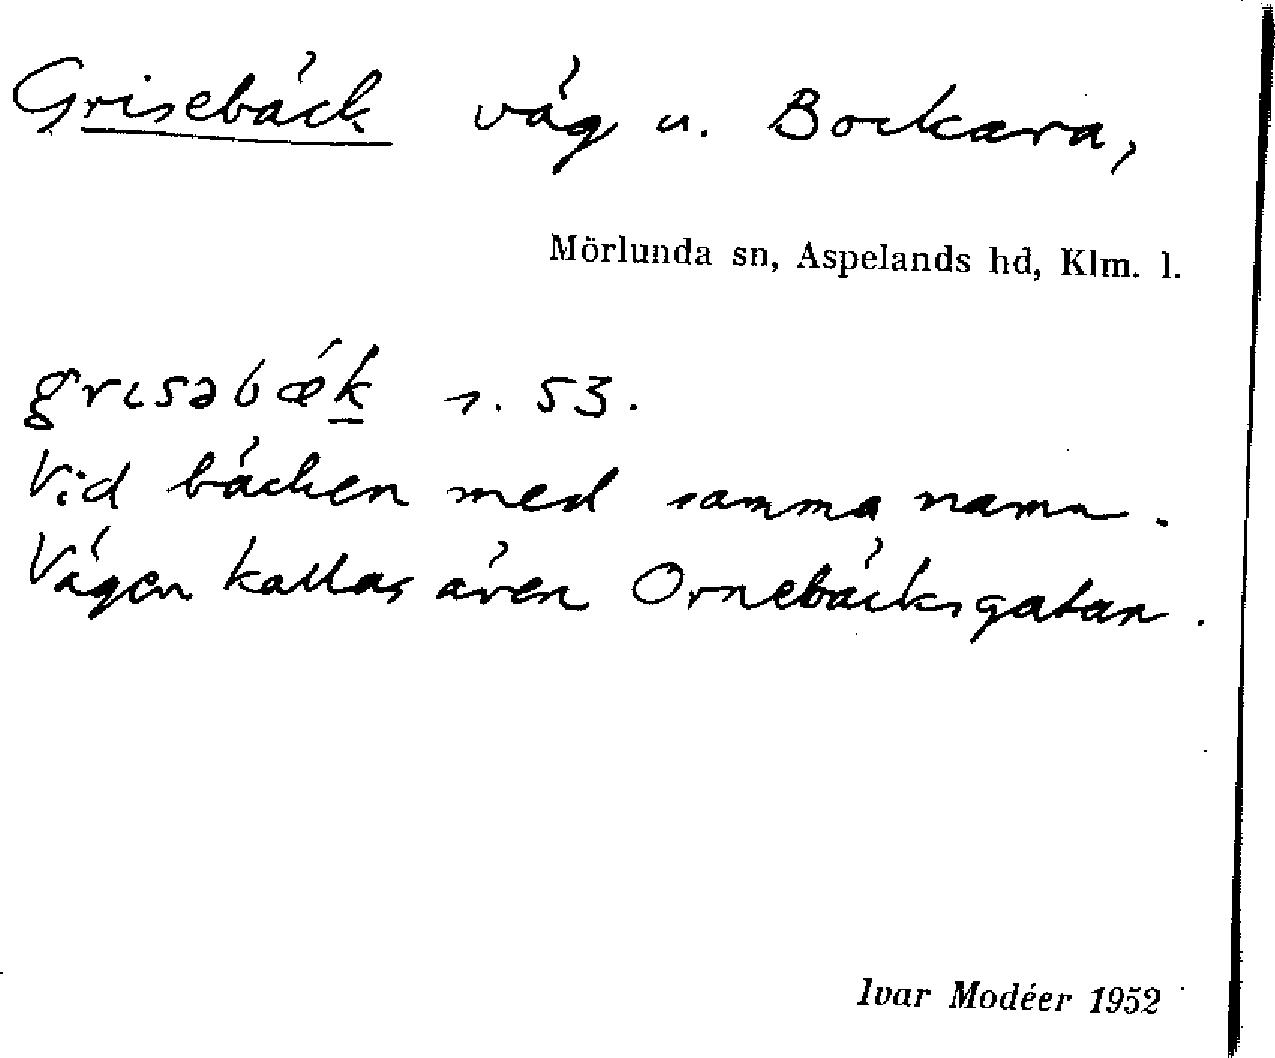 Grisebäck väg u. Bockara,
Mörlunda sn, Aspelands hd, Klm. l.
grɩsəbǽk s. 53.
Vid bäcken med samma namn.
Vägen kallas även Ornebäcksgatan.
Ivar Modéer 1952